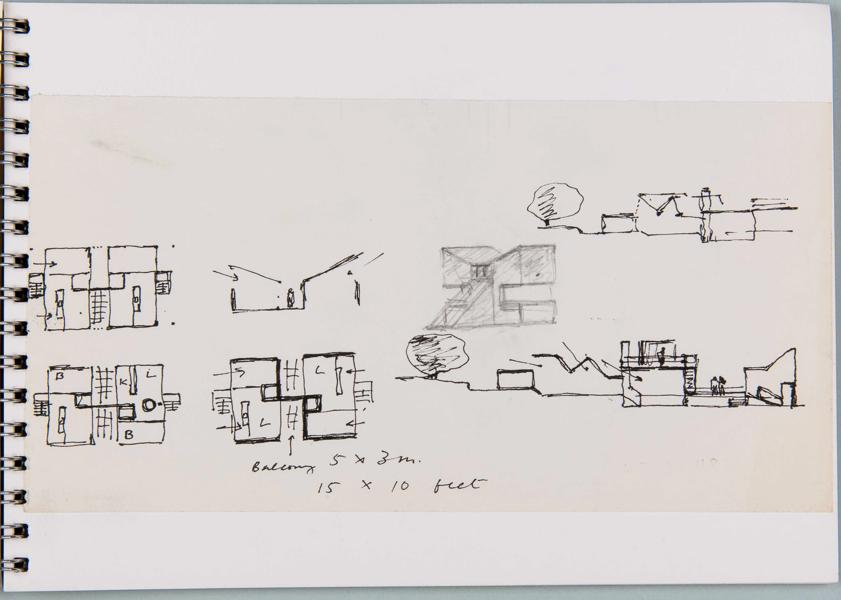 B
K L
B
L
L
Balcony 5 x 3 m.
15 x 10 feet